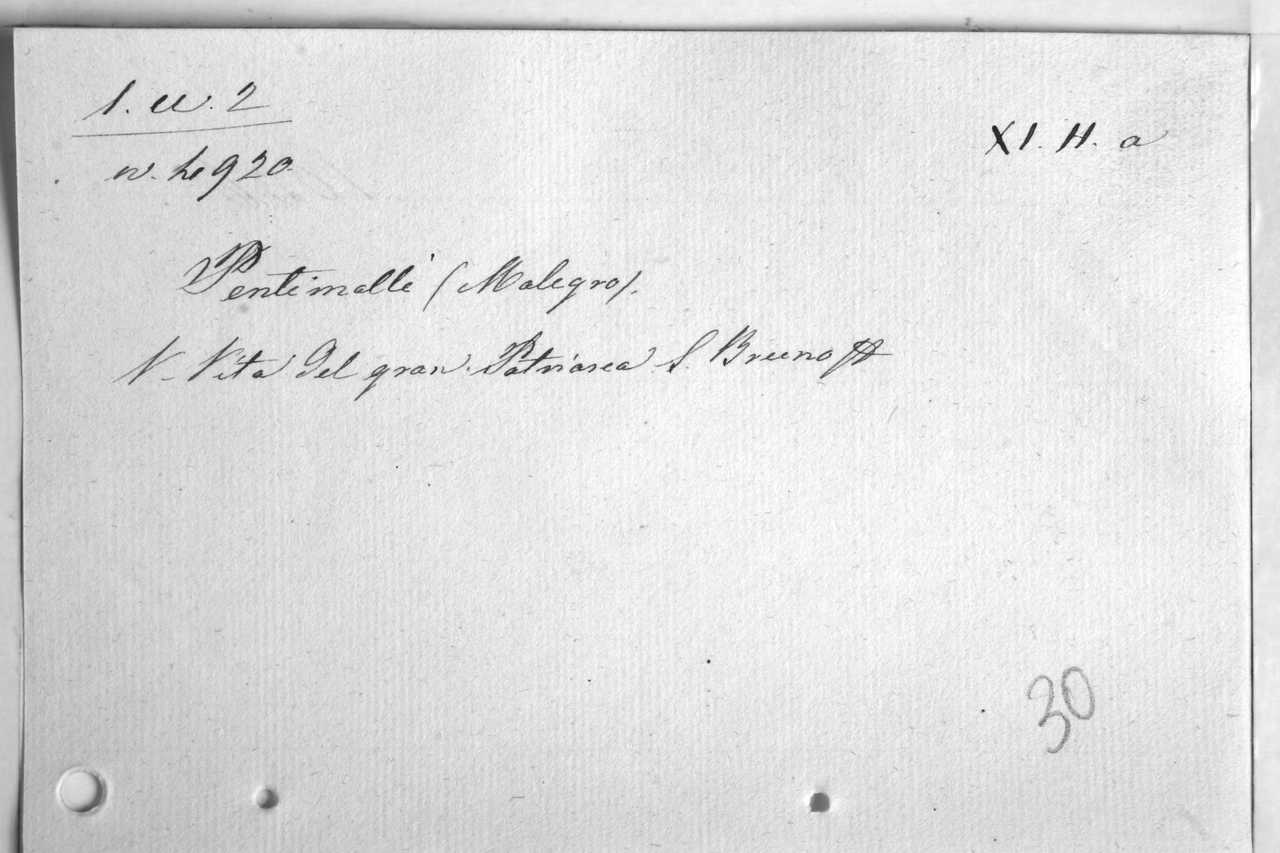 1. u. 2
n. 4920.
XI. H. a
Pentimalli (Malegro).
V. Vita del gran Patriarca S. Bruno
30